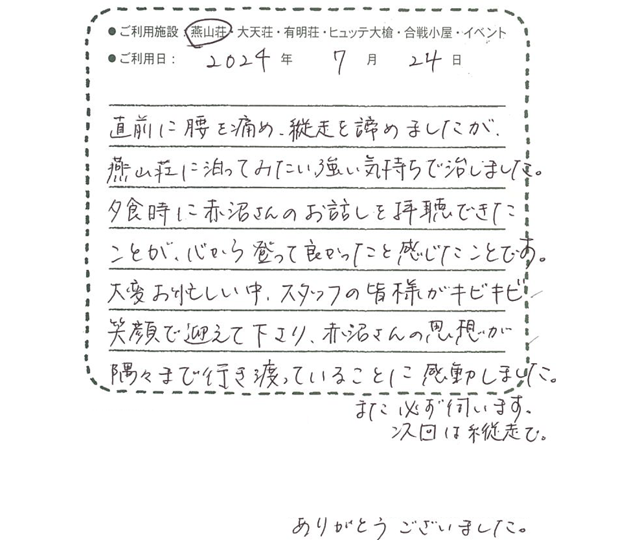 ●ご利用施設：燕山荘・大天荘・有明荘・ヒュッテ大槍・合戦小屋・イベント
●ご利用日： 2024 年 7 月 24 日
直前に腰を痛め、縦走を諦めましたが、
燕山荘に泊ってみたい強い気持ちで治しました。
夕食時に赤沼さんのお話しを拝聴できた
ことが、心から登って良かったと感じたことです。
大変お忙しい中、スタッフの皆様がキビキビ
笑顔で迎えて下さり、赤沼さんの思想が
隅々まで行き渡っていることに感動しました。
また必ず伺います。
次回は縦走で。
ありがとうございました。